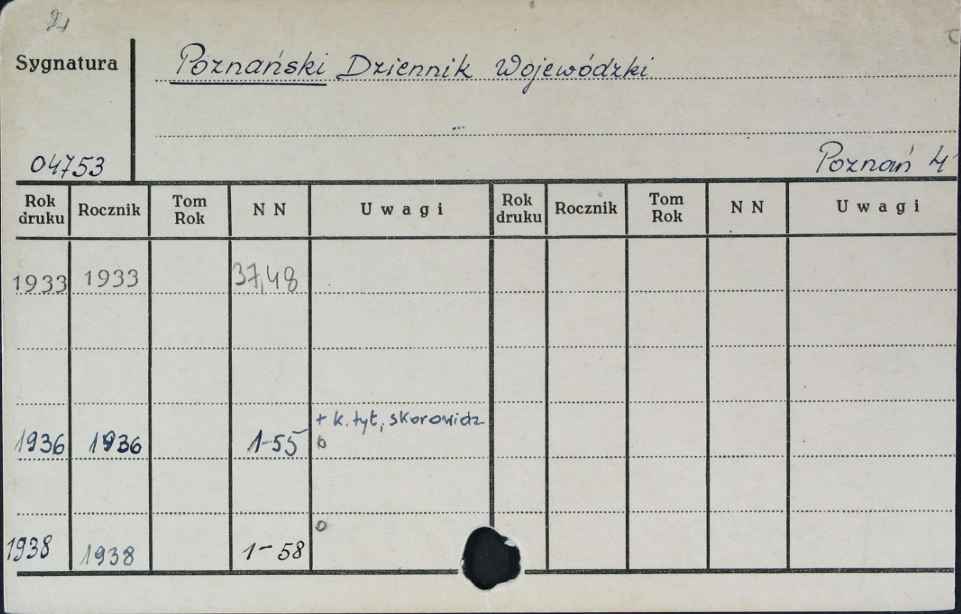 Sygnatura
Poznański Dziennik Wojewódzki
04753
Poznań 4
Rok druku Rocznik Tom Rok N N Uwagi Rok druku Rocznik Tom Rok N N Uwagi
1933 1933 37,48
+ k. tyt, skorowidz
1936 1936 1-55 b
1938 1938 1-58